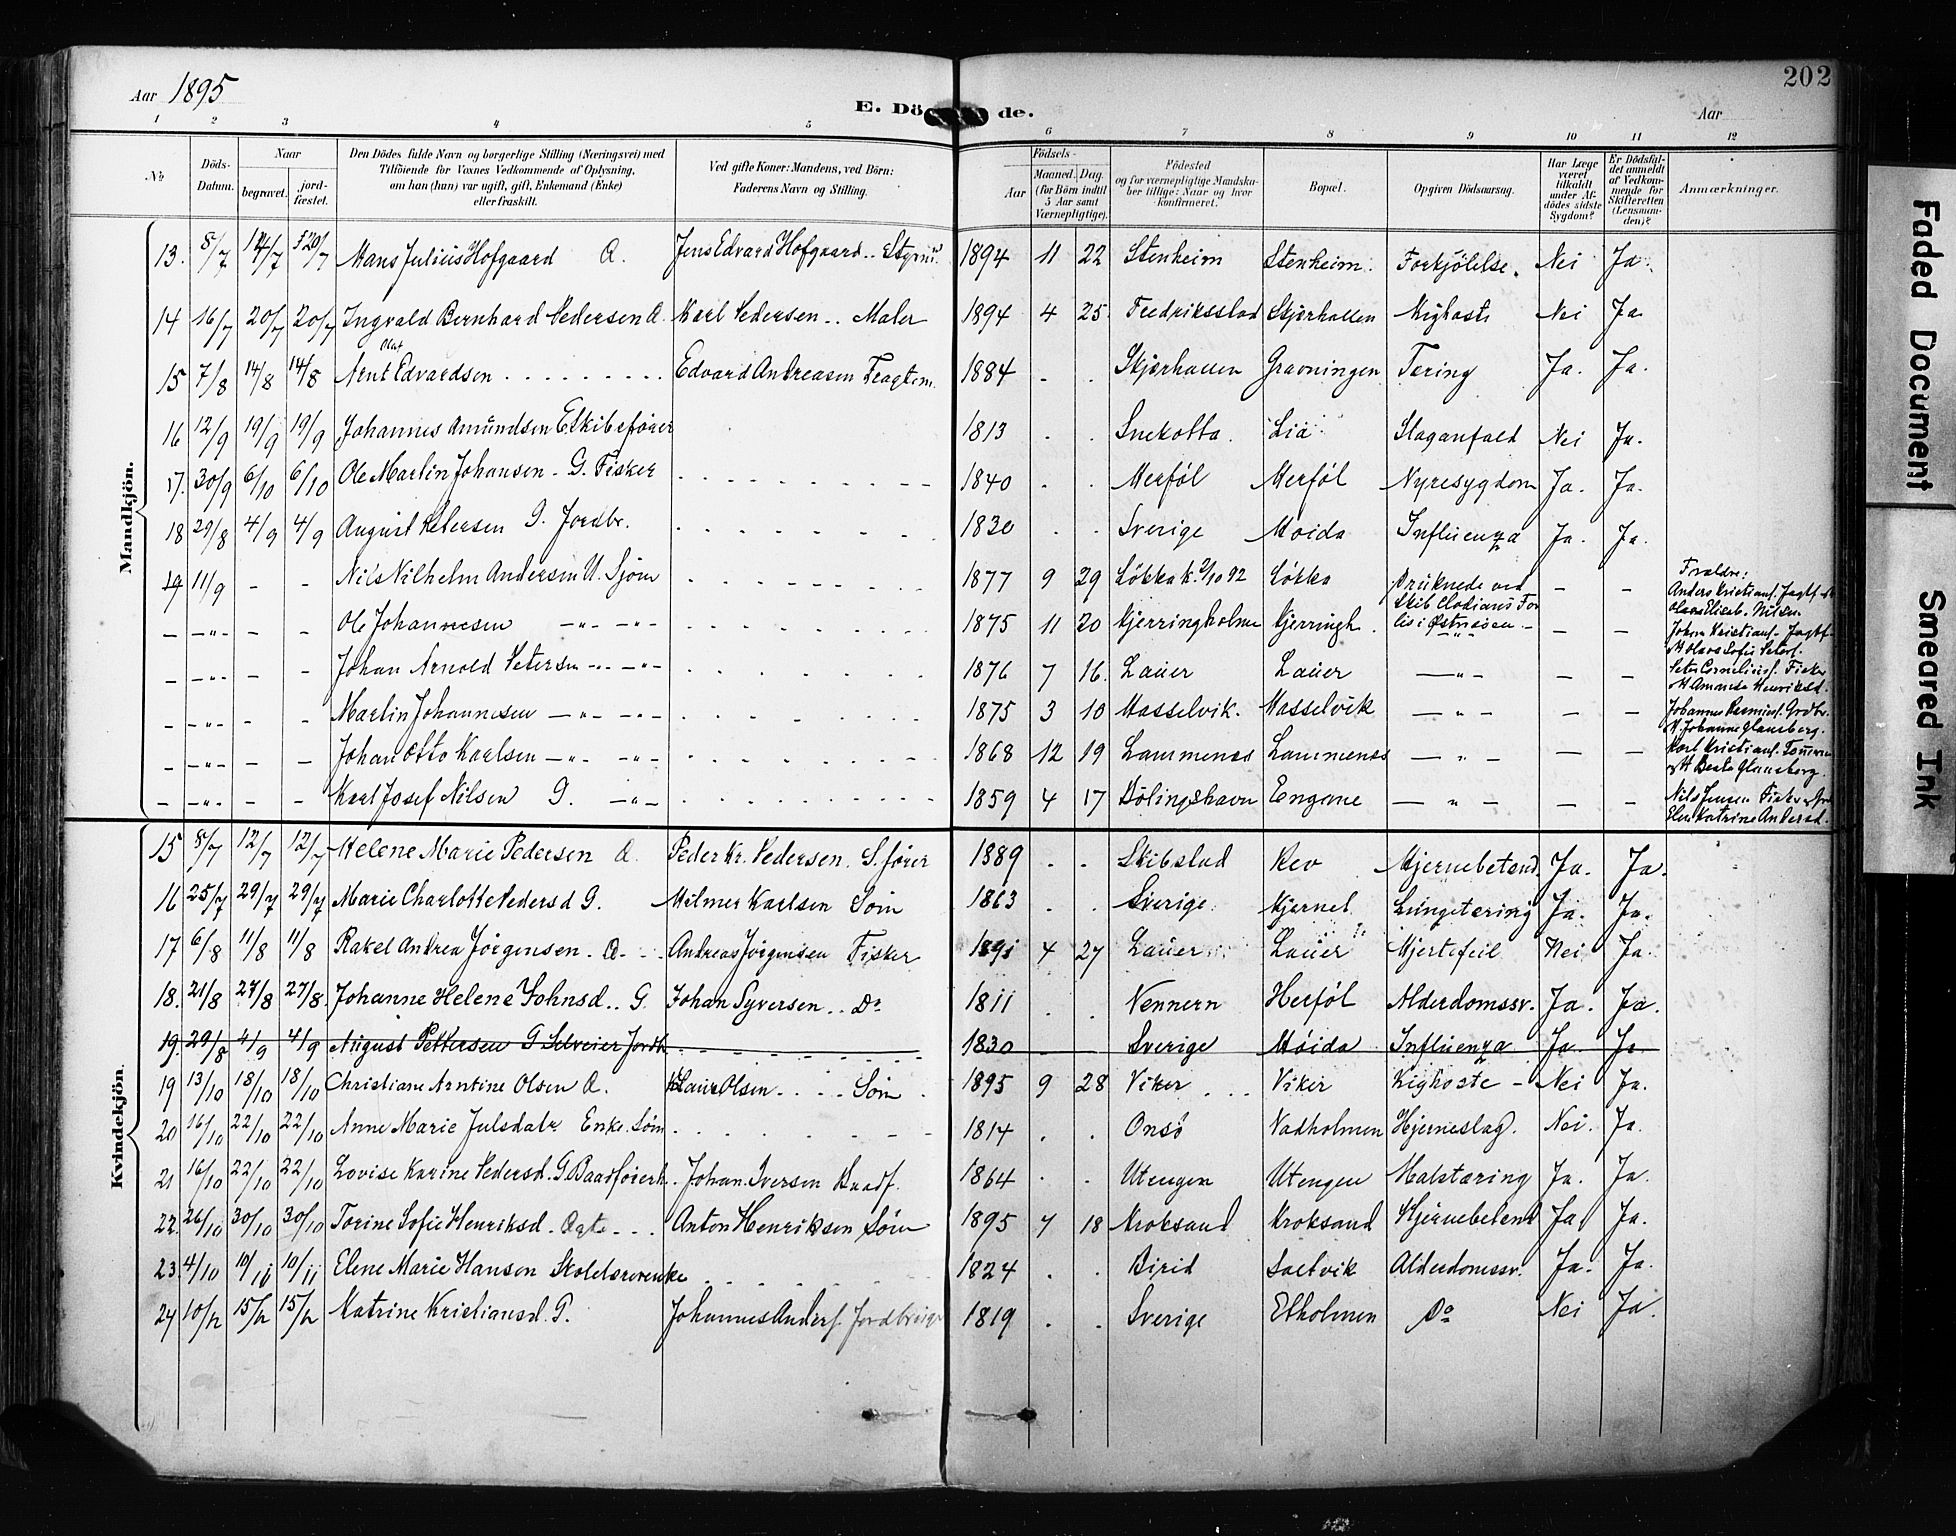 Aar 1895
E. Döde.
Aar
202
1 2 3 4 5 6 7 8 9 10 11 12
No
Döds-Datum.
Naar
begravet.
jord-fæstet.
Den Dödes fulde Navn og borgerlige Stilling (Næringsvei) med Tilföiende for Voxnes Vedkommende af Oplysning, om han (hun) var ugift, gift, Enkemand (Enke) eller fraskilt.
Ved gifte Koner: Mandens, ved Börn: Faderens Navn og Stilling.
Födsels-
Aar
Maaned. Dag.
(for Börn indtil 5 Aar samt Værnepligtige).
Födested
og for værnepligtige Mandskaber tillige: Naar og hvor konfirmeret.
Bopæl.
Opgiven Dödsaarsag.
Har Læge været tilkaldt under Afdödes sidste Sygdom?
Er Dödsfaldet anmeldt af Vedkommende for Skifteretten (Lensmanden)?
Anmærkninger.
Mandkjön.
13. 8/7 14/7 20/7 Hans Julius Hofgaard Æ. Jens Edvard Hofgaard .. Styrm. 1894 11 22 Stenheim Stenheim. Forkjölelse. Nei Ja.
14 16/7 20/7 20/7 Ingvald Bernhard Pedersen Æ. Karl Pedersen .. Maler 1894 4 25 Fredriksstad Skjærhallen Kighoste Nei Ja
15 7/8 14/8 14/8 Arnt Olaf Edvardsen Edvard Andreasen Fragtem. 1884 - . Skjærhallen Gravningen Tering Ja. Ja.
16 12/9 19/9 19/9 Johannes Amundsen E. Skibsfører 1813 . . Snekotta. Lia Slaganfald Nei Ja.
17. 30/9 6/10 6/10 Ole Martin Johansen - G. Fisker 1840 . . Herföl Herföl Nyresygdom Ja. Ja.
18 29/8 4/9 4/9 August Petersen G. Jordbr. 1830 . . Sverige Moida Influenza Ja. Ja.
19 11/9 - - Nils Vilhelm Andersen U. Sjöm 1877 9 29 Lökka k. 2/10 92 Lökka Druknede ved Skib Clodians Forlis i Østersöen - - - Forældre: Anders Kristians. Jagtf.
- -"- - - Ole Johannesen -"- -"- 1875 11 20 Kjerringholmen Kjerringh. -"- - -
- -"- - - Johan Arnold Petersen -"- -"- 1876 7 16. Lauer Lauer -"- - - Peter Cornelius. Fisker
- -"- - - Martin Johannesen -"- -"- 1875 3 10 Hasselvik. Hasselvik -"- - -
- -"- - - Johan Otto Karlsen -"- -"- 1868 12 19 Lammenes Lammenes -"- - -
- -"- - - Karl Josef Nilsen G. -"- 1859 4 17 Bölingshavn Engene -"- - - Nils Jensen Fisker
Kvindekjön.
15 8/7 12/7 12/7 Helene Marie Pedersen Æ. Peder Kr. Pedersen. S. fører 1889 . . Skibstad Rev Hjernebetend. Ja. Ja.
16 25/7 29/7 29/7 Marie Charlotte Pedersd G. Hilmer Karlsen Söm 1863 . . Sverige. Kjernel Lungetæring Ja. Ja.
17 6/8 11/8 11/8 Rakel Andrea Jörgensen. Æ - - Andreas Jörgensen Fisker 1891 4 27 Lauer Lauer Hjertefeil Nei Ja.
18. 21/8 27/8 27/8. Johanne Helene Johnsd.. G. Johan Syversen .. Do 1811 . . Nennern Herföl Alderdomssv. Ja. Ja.
19. 29/8 4/9 4/9 August Pettersen G Selveier Jordbr. 1830 - - Sverige Moida Influenza Ja. Ja
19 13/10 18/10 18/10 Christiane Arntine Olsen Æ. Laur Olsen . . . . Söm 1895 9 28 Viker . . . Viker Kighoste - Nei Ja.
20 16/10 22/10 22/10 Anne Marie Julsdatr Enke. Söm 1814 . . Onsö Vadholmen Hjerneslag. Nei. Ja.
21 16/10 22/10 22/10 Lovise Karine Pedersd. G. Baadförerh. Johan Iversen Baadf. 1864 . . Utengen Utengen Halstæring Ja. Ja.
22. 26/10 30/10 30/10 Torine Sofie Henriksd. Ægte - - - Anton Henriksen Söm 1895 7 18 Kroksand Kroksand Hjernebetend Ja. Ja.
23 4/10 10/11 10/11 Elene Marie Hansen Skolelærerenke 1824 . . Birid Saltvik Alderdomssv. Ja. Ja.
24 10/12 15/12 15/12 Katrine Kristiansd. G. Johannes Anders. Jordbruger 1819 . . Sverige Etholmen Do Nei Ja.
Faded Document
Smeared Ink